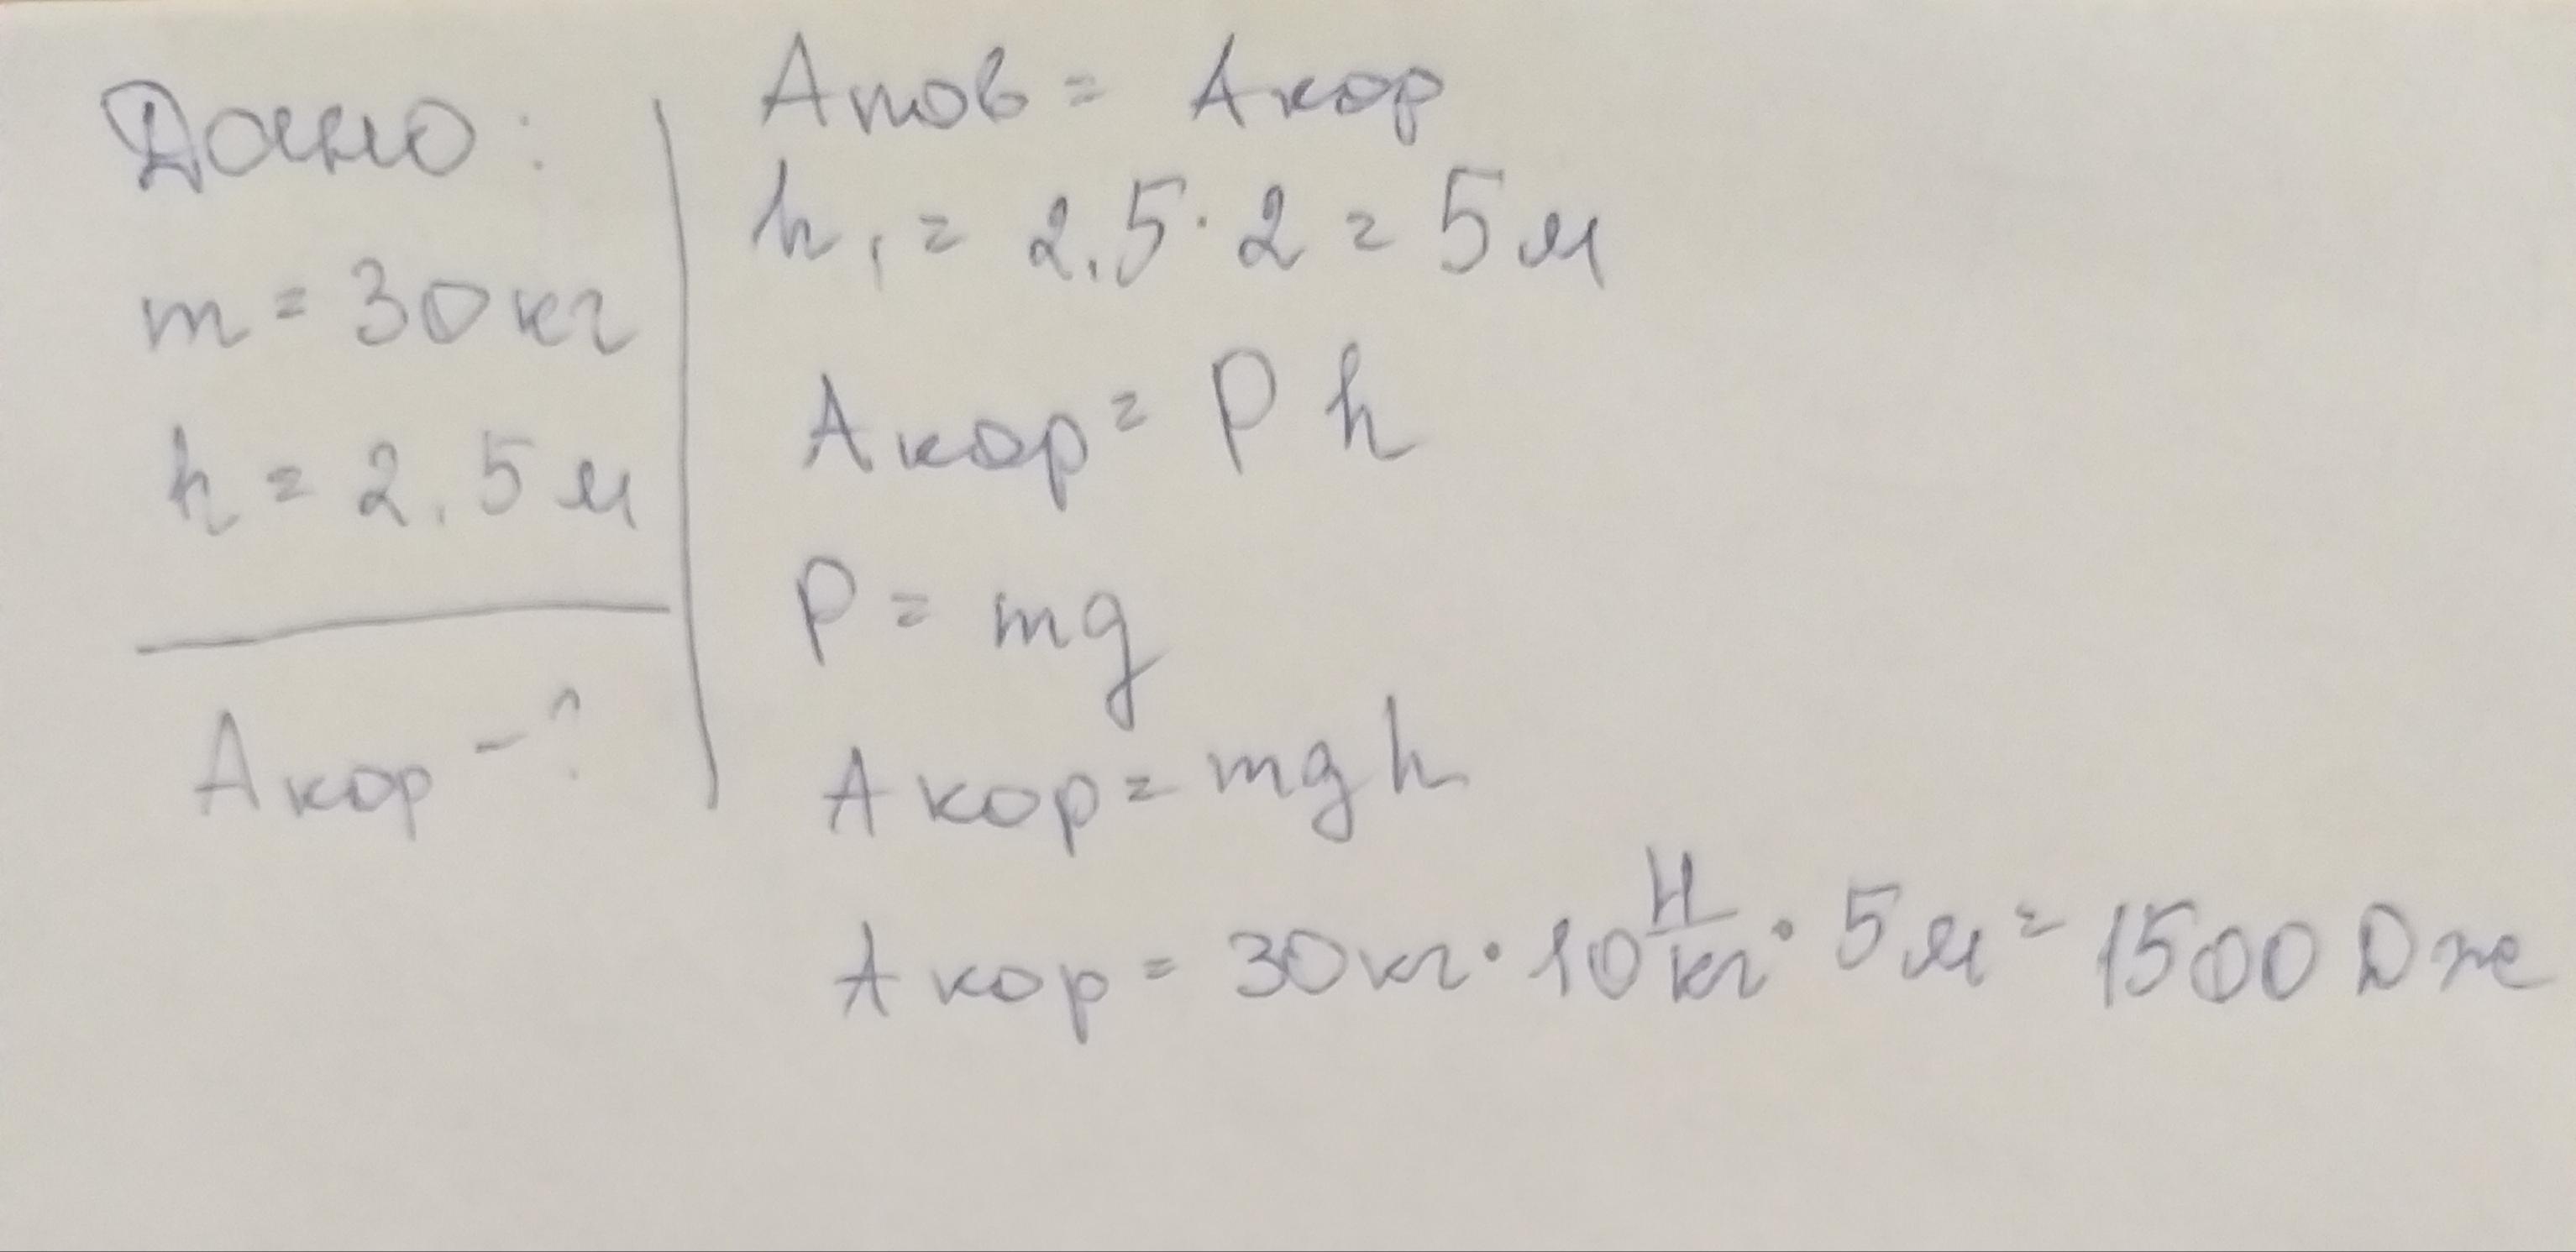 Дано:
m = 30 кг
h = 2.5 м
A кор - ?
A пов = A кор
h₁ = 2.5 · 2 = 5 м
A кор = P h
P = mg
A кор = mgh
A кор = 30 кг · 10 Н/кг · 5 м = 1500 Дж